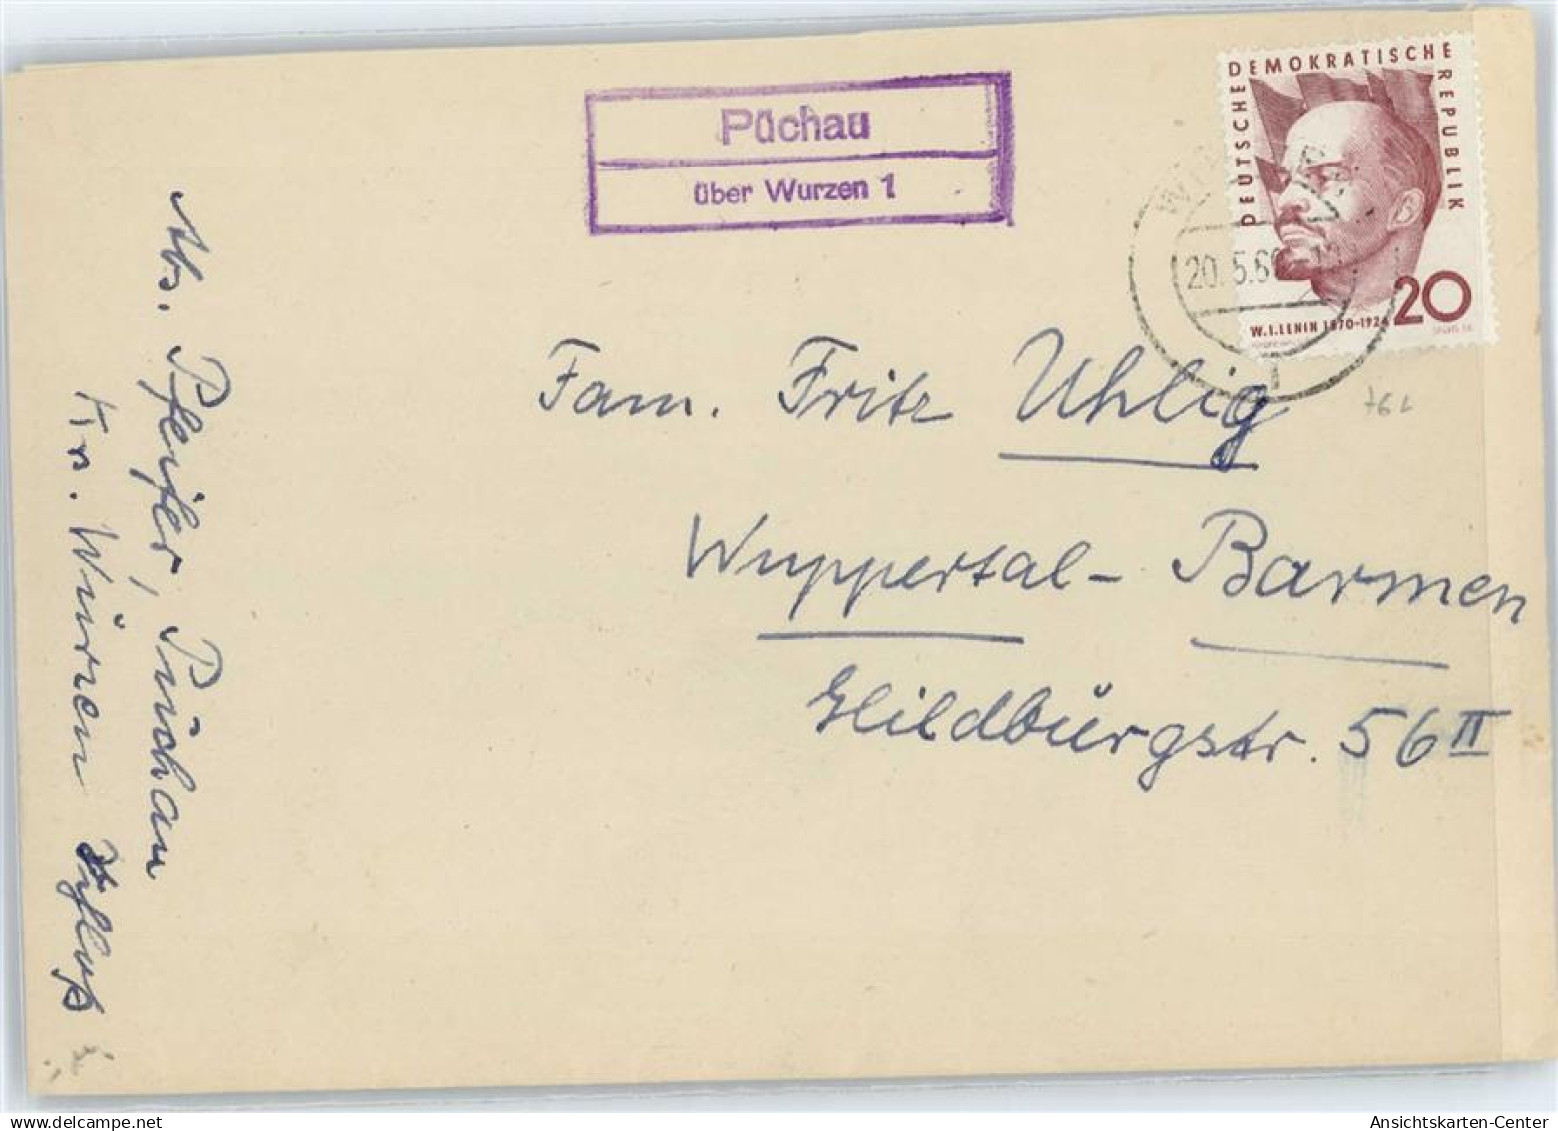 Püchau
über Wurzen 1
DEUTSCHE DEMOKRATISCHE REPUBLIK
20
W.I.LENIN 1870-1924
20.5.60
Fam. Fritz Uhlig
Wuppertal-Barmen
Hildburgstr. 56 II
Abs. Pfeifer, Püchau
Krs. Wurzen
delcampe.net
Ansichtskarten-Center